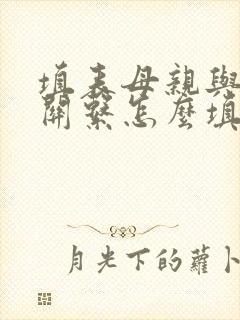 填表母親與
關繫怎麼填
月光下的蘿卜